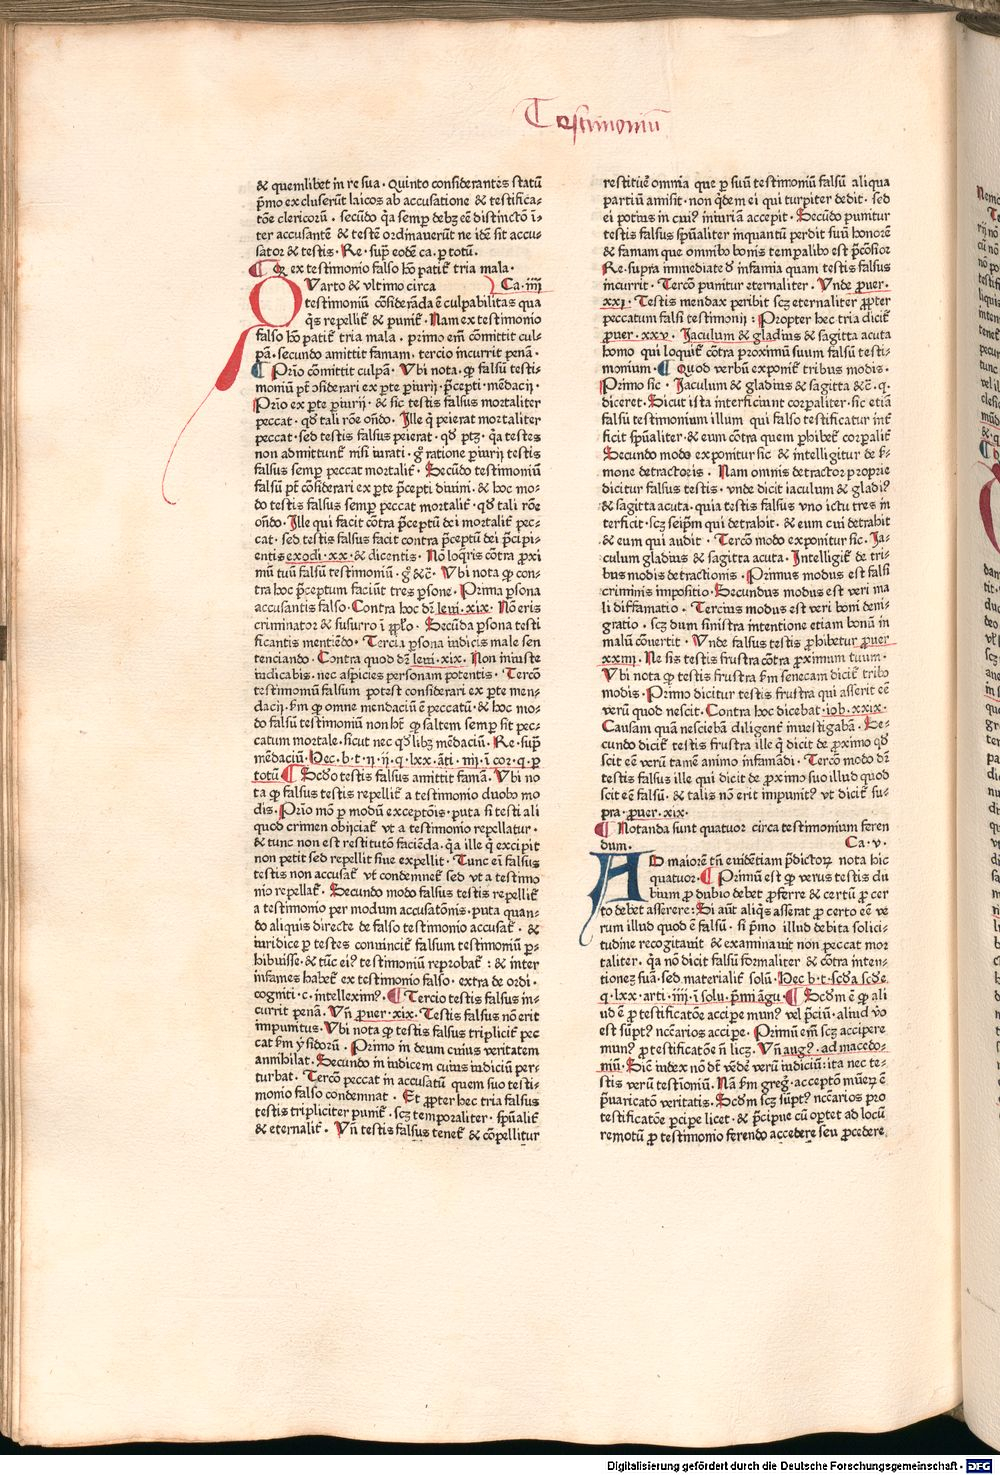 Testimoniū
& quemlibet in re sua · Quinto considerantes statū
p̄mo excluserūt laicos ab accusatione & testifica-
tōe clericorū · secūdo q̄a semp̄ debꝫ eē distinctō ī-
ter accusantē & testē ordinauerūt ne idē sit accu-
sator & testis · Re · sup̄ eodē ca · p̲ totū ·
¶ Qꝫ ex testimonio falso hō patit̄ tria mala ·
QVarto & vltimo circa Ca · iiij
testimoniū cōsiderāda ē culpabilitas qua
q̄s repellit̄ & punit̄ · Nam ex testimonio
falso hō patit̄ tria mala · primo em̄ cōmittit cul-
pā · secundo amittit famam · tercio incurrit penā ·
¶ Prīo cōmittit culpā · Vbi nota · ꝙ falsū testi-
moniū pt̄ ꝯsiderari ex ꝑte ꝑiurij · p̄cepti · mēdacij ·
Prīo ex ꝑte ꝑiurij · & sic testis falsus mortaliter
peccat · qď tali rōe oñdo · Ille q̄ peierat mortaliter
peccat · sed testis falsus peierat · qď ptꝫ · q̄a testes
non admittunt̄ nisi iurati · g̊ ratione ꝑiurij testis
falsus semp̄ peccat mortalit̄ · Secūdo testimoniū
falsū pt̄ cōsiderari ex ꝑte p̄cepti diuini · & hoc mo-
do testis falsus semp̄ peccat mortalit̄ · qď tali rōe
oñdo · Ille qui facit cōtra p̄ceptū dei mortalit̄ pec-
cat · sed testis falsus facit contra p̄ceptū dei p̄cipi-
entis exodi · xx · & dicentis · Nō loq̄ris cōtra ꝓxi
mū tuū falsū testimoniū · g̊ &c̄ · Vbi nota ꝙ con-
tra hoc p̄ceptum faciūt tres ꝑsone · Prima ꝑsona
accusantis falso · Contra hoc dr̄ leui · xix · Nō eris
criminator & susurro ī ꝓp̄lo · Secūda ꝑsona testi
ficantis mentiēdo · Tercia ꝑsona iudicis male sen
tenciando · Contra quod dr̄ leui · xix · Non iniuste
iudicabis · nec aspicies personam potentis · Tercō
testimoniū falsum potest considerari ex ꝑte men-
dacij · ẜm ꝙ omne mendaciū ē peccatū · & hoc mo-
do falsū testimoniū non hēt ꝙ saltem semp̄ sit pec-
catum mortale · sicut nec qďlibꝫ mēdaciū · Re · sup̄
mēdaciū · Hec · b · t · ij · ij · q · lxx · āti · iiij · ī cor · q · ꝑ
totū ¶ Scďo testis falsus amittit famā · Vbi no
ta ꝙ falsus testis repellit̄ a testimonio duobꝰ mo
dis · Prīo mō ꝑ modū exceptōis · puta si testi ali
quod crimen obijciat̄ vt a testimonio repellatur ·
& tunc non est restitutō faciēda · q̄a ille q̄ excipit
non petit sed repellit siue expellit · Tunc eī falsus
testis non accusat̄ vt condemnet̄ sed vt a testimo
nio repellat̄ · Secundo modo falsus testis repellit̄
a testimonio per modum accusatōnis · puta quan-
do aliquis directe de falso testimonio accusat̄ · &
iuridice ꝑ testes conuincit̄ falsum testimoniū ꝑ-
hibuisse · & tūc eiꝰ testimoniū reprobat̄ : & inter
infames habet̄ ex testimonio falso · extra de ordi ·
cogniti · c · intelleximꝰ · ¶ Tercio testis falsus in-
currit penā · Vñ ꝓuer · xix · Testis falsus nō erit
impunitus · Vbi nota ꝙ testis falsus triplicit̄ pec
cat ẜm ysidorū · Primo in deum cuius veritatem
annihilat · Secundo in iudicem cuius iudiciū per-
turbat · Tercō peccat in accusatū quem suo testi-
monio falso condemnat · Et ꝓpter hec tria falsus
testis tripliciter punit̄ · scꝫ temporaliter · sp̄ualit̄
& eternalit̄ · Vñ testis falsus tenet̄ & cōpellitur
restituē omnia que ꝑ suū testimoniū falsū aliqua
partiū amisit · non q̄dem ei qui turpiter dedit · sed
ei potius in cuiꝰ iniuriā accepit · Secūdo punitur
testis falsus sp̄ualiter inquantū perdit suū honorē
& famam que omnibꝰ bonis temp̄alibꝰ est p̄ciosior
Re · supra immediate ď infamia quam testis falsus
incurrit · Tercō punitur eternaliter · Vnde ꝓuer ·
xxi · Testis mendax peribit scꝫ eternaliter ꝓpter
peccatum falsi testimonij : Propter hec tria dicit̄
ꝓuer · xxv · Jaculum & gladius & sagitta acuta
homo qui loquit̄ cōtra proximū suum falsū testi-
monium · ¶ Quod verbū exponit̄ tribus modis ·
Primo sic · Jaculum & gladius & sagitta &c̄ · q ·
diceret · Sicut ista interficiunt corꝑaliter · sic etiā
falsū testimonium illum qui falso testificatur int̄
ficit sp̄ualiter & eum cōtra quem ꝑhibet̄ corꝑalit̄
Secundo modo exponitur sic & intelligitur de ẜ-
mone detractoris · Nam omnis detractor proprie
dicitur falsus testis · vnde dicit iaculum & gladiꝰ
& sagitta acuta · quia testis falsus vno ictu tres in
terficit · scꝫ seip̄m qui detrahit · & eum cui detrahit
& eum qui audit · Tercō modo exponitur sic · Ja-
culum gladius & sagitta acuta · Intelligit̄ de tri-
bus modis detractionis · Primus modus est falsi
criminis impositio · Secundus modus est veri ma
li diffamatio · Tercius modus est veri boni deni-
gratio · scꝫ dum sinistra intentione etiam bonū in
malū cōuertit · Vnde falsus testis ꝓhibetur ꝓuer
xxiiij · Ne sis testis frustra cōtra ꝓximum tuum ·
Vbi nota ꝙ testis frustra ẜm senecam dicit̄ tribꝰ
modis · Primo dicitur testis frustra qui asserit eē
verū quod nescit · Contra hoc dicebat · iob · xxix ·
Causam quā nesciebā diligent̄ inuestigabā · Se-
cundo dicit̄ testis frustra ille q̄ dicit de ꝓximo qď
scit eē verū tamē animo infamādi · Tercō modo dr̄
testis falsus ille qui dicit de ꝓximo suo illud quod
scit eē falsū · & talis nō erit impunitꝰ vt dicit̄ su-
pra · ꝓuer · xix ·
¶ Notanda sunt quatuor circa testimonium feren
dum · Ca · v ·
AD maiorē tñ euidētiam p̄dictoꝝ nota hic
quatuor · ¶ Primū est ꝙ verus testis du
bium ꝓ dubio debet ꝓferre & certū ꝓ cer
to debet asserere : Si aūt aliq̄s asserat ꝓ certo eē ve
rum illud quod ē falsū · si p̄mo illud debita solici-
tudine recogitauit & examinauit non peccat mor
taliter · q̄a nō dicit falsū formaliter & cōtra inten-
tionē suā · sed materialit̄ solū · Hec b · t · scďa scďe
q · lxx · arti · iiij · ī solu · p̄mi āgu · ¶ Scďm ē ꝙ ali
ud ē ꝓ testificatōe accipe munꝰ vel p̄ciū · aliud vo
est sūptꝰ nccārios accipe · Primū em̄ scꝫ accipere
munꝰ ꝓ testificatōe ñ licꝫ · Vñ augꝰ · ad macedo-
niū · Sic̄ iudex nō dꝫ vēdē verū iudiciū : ita nec te-
stis verū testioniū · Nā ẜm greg̊ · acceptō mūeꝝ ē
p̄uaricatō veritatis · Scďm scꝫ sūptꝰ nccārios pro
testificatōe ꝑcipe licet · & p̄cipue cū oꝑtet ad locū
remotū ꝓ testimonio ferendo accedere seu ꝓcedere
Digitalisierung gefördert durch die Deutsche Forschungsgemeinschaft · DFG